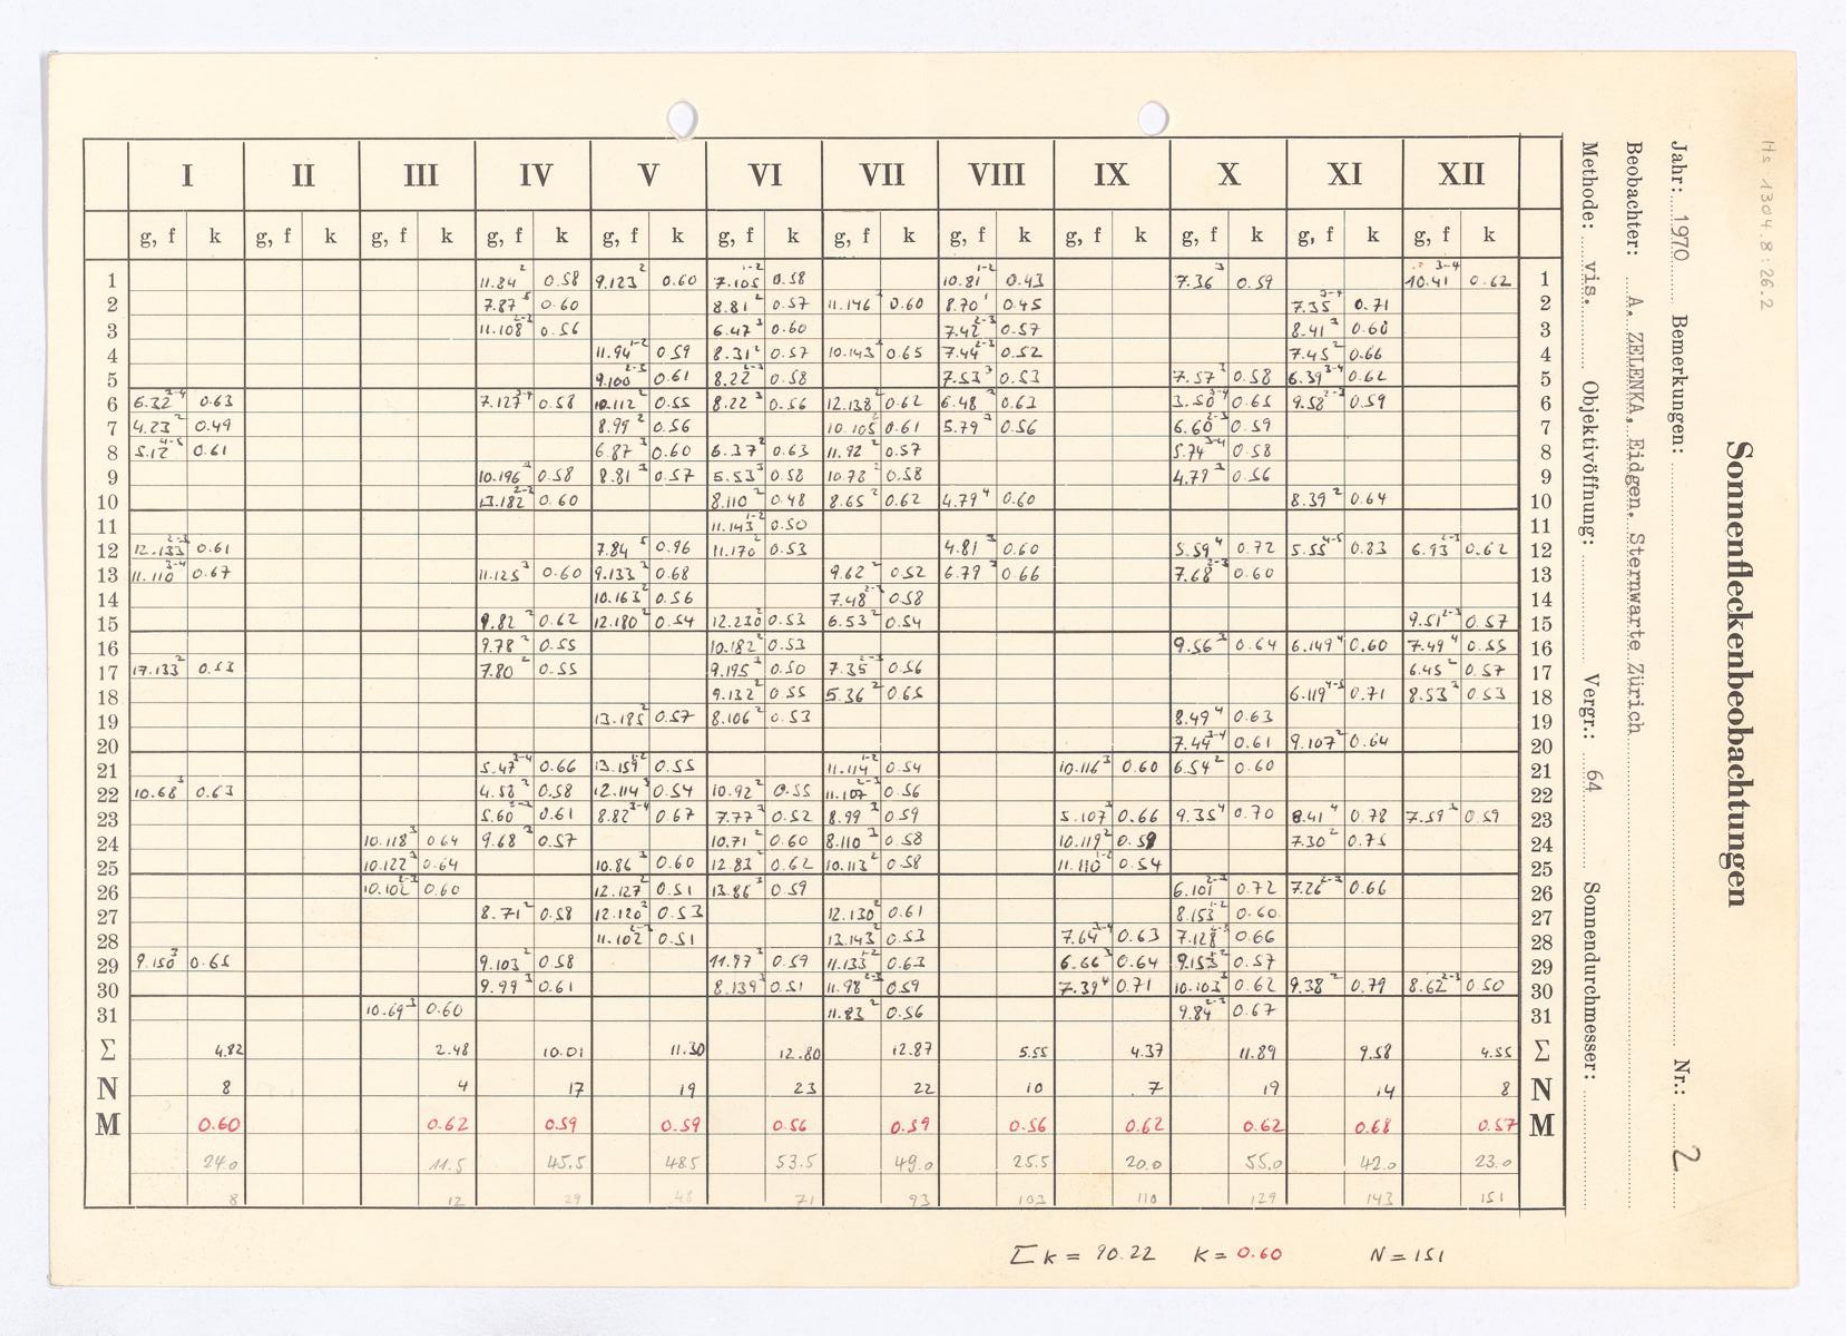 Hs 1304.8:26.2
Sonnenfleckenbeobachtungen
Jahr: 1970 Bemerkungen: Nr.: 2
Beobachter: A. ZELENKA, Eidgen. Sternwarte Zürich
Methode: vis. Objektivöffnung: Vergr.: 64 Sonnendurchmesser:
I II III IV V VI VII VIII IX X XI XII
g, f k g, f k g, f k g, f k g, f k g, f k g, f k g, f k g, f k g, f k g, f k g, f k
1 11.84 2 0.58 9.123 2 0.60 7.105 1-2 0.58 10.81 1-2 0.43 7.36 3 0.59 10.41 3-4 0.62 1
2 7.87 5 0.60 8.81 2 0.57 11.146 0.60 8.70 1 0.45 7.35 3-4 0.71 2
3 11.108 2-3 0.56 6.47 3 0.60 7.42 2-3 0.57 8.41 3 0.60 3
4 11.94 1-2 0.59 8.31 2 0.57 10.143 0.65 7.44 2-3 0.52 7.45 2 0.66 4
5 9.100 2-3 0.61 8.22 2-3 0.58 7.53 3 0.53 7.57 3 0.58 6.39 3-4 0.62 5
6 6.32 3-4 0.63 7.127 3-4 0.58 10.112 2 0.55 8.22 3 0.56 12.138 2 0.62 6.48 2 0.63 3.50 3-4 0.65 9.58 2-3 0.59 6
7 4.23 2 0.49 8.99 2 0.56 10.105 2 0.61 5.79 3 0.56 6.60 2-3 0.59 7
8 5.12 4-5 0.61 6.87 3 0.60 6.37 2 0.63 11.92 2 0.57 5.74 3-4 0.58 8
9 10.196 2 0.58 8.81 3 0.57 5.53 3 0.58 10.78 2 0.58 4.79 3 0.56 9
10 13.182 2-3 0.60 8.110 2 0.48 8.65 2 0.62 4.79 4 0.60 8.39 2 0.64 10
11 11.143 1-2 0.50 11
12 12.133 2-3 0.61 7.84 5 0.96 11.170 2 0.53 4.81 3 0.60 5.59 4 0.72 5.55 4-5 0.83 6.93 2-3 0.62 12
13 11.110 3-4 0.67 11.125 3 0.60 9.133 3 0.68 9.62 2 0.52 6.79 3 0.66 7.68 2-3 0.60 13
14 10.163 2 0.56 7.48 2-3 0.58 14
15 9.82 2 0.62 12.180 2 0.54 12.230 2 0.53 6.53 2 0.54 9.51 2-3 0.57 15
16 9.78 2 0.55 10.182 2 0.53 9.56 3 0.64 6.149 4 0.60 7.49 4 0.55 16
17 17.133 2 0.53 7.80 2 0.55 9.195 3 0.50 7.35 2-3 0.56 6.45 2 0.57 17
18 9.132 2 0.55 5.36 2 0.65 6.119 4-5 0.71 8.53 3 0.53 18
19 13.185 2 0.57 8.106 2 0.53 8.49 4 0.63 19
20 7.44 3-4 0.61 9.107 2 0.64 20
21 5.47 3-4 0.66 13.159 1-2 0.55 11.114 1-2 0.54 10.116 3 0.60 6.54 2 0.60 21
22 10.68 3 0.63 4.58 2 0.58 12.114 3 0.54 10.92 2 0.55 11.107 2-3 0.56 22
23 5.60 2-3 0.61 8.82 3-4 0.67 7.77 3 0.52 8.99 3 0.59 5.107 3 0.66 9.35 4 0.70 8.41 4 0.78 7.59 3 0.59 23
24 10.118 3 0.64 9.68 3 0.57 10.71 2 0.60 8.110 3 0.58 10.119 2 0.59 7.30 2 0.75 24
25 10.122 3 0.64 10.86 3 0.60 12.83 2 0.62 10.113 2 0.58 11.110 1-2 0.54 25
26 10.102 2-3 0.60 12.127 2 0.51 13.86 3 0.59 6.101 2-3 0.72 7.26 2-3 0.66 26
27 8.71 2 0.58 12.120 2 0.53 12.130 2 0.61 8.153 1-2 0.60 27
28 11.102 2-3 0.51 13.143 2 0.53 7.64 3-4 0.63 7.128 0.66 28
29 9.150 3 0.65 9.103 2 0.58 11.97 3 0.59 11.133 2-3 0.63 6.66 3 0.64 9.153 2 0.57 29
30 9.99 3 0.61 8.139 3 0.51 11.98 2-3 0.59 7.39 4 0.71 10.103 3 0.62 9.38 2 0.79 8.62 2-3 0.50 30
31 10.69 3 0.60 11.83 2 0.56 9.84 2-3 0.67 31
Σ 4.82 2.48 10.01 11.30 12.80 12.87 5.55 4.37 11.89 9.58 4.55 Σ
N 8 4 17 19 23 22 10 7 19 14 8 N
M 0.60 0.62 0.59 0.59 0.56 0.59 0.56 0.62 0.62 0.68 0.57 M
24.0 11.5 45.5 48.5 53.5 49.0 25.5 20.0 55.0 42.0 23.0
8 12 29 48 71 93 103 110 129 143 151
Σk = 90.22 K = 0.60 N = 151